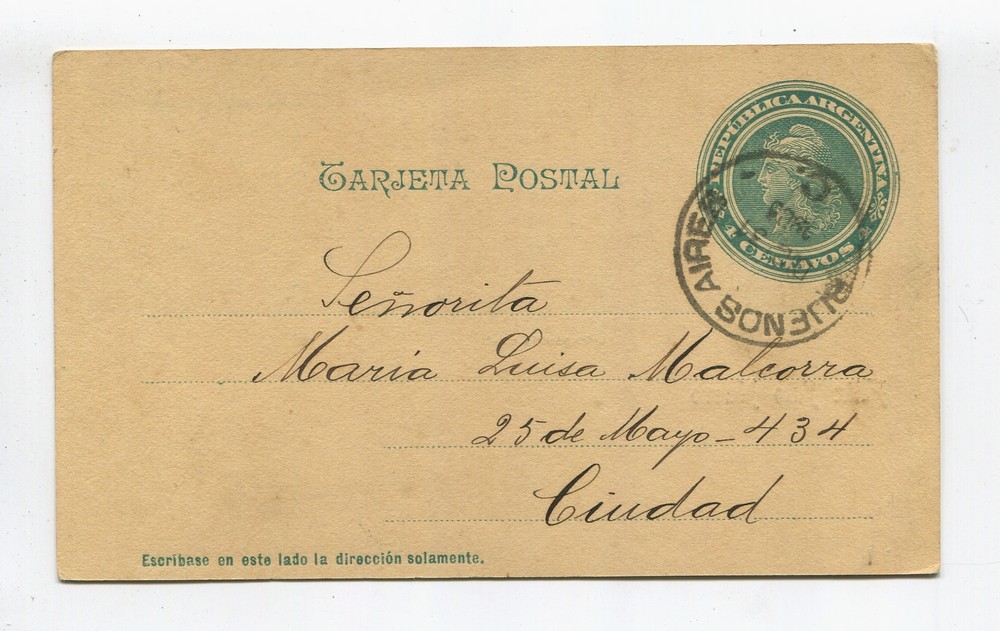 REPÚBLICA ARGENTINA
4 CENTAVOS 4
TARJETA POSTAL
BUENOS AIRES
Señorita
Maria Luisa Malcorra
25 de Mayo - 434
Ciudad
Escríbase en este lado la dirección solamente.